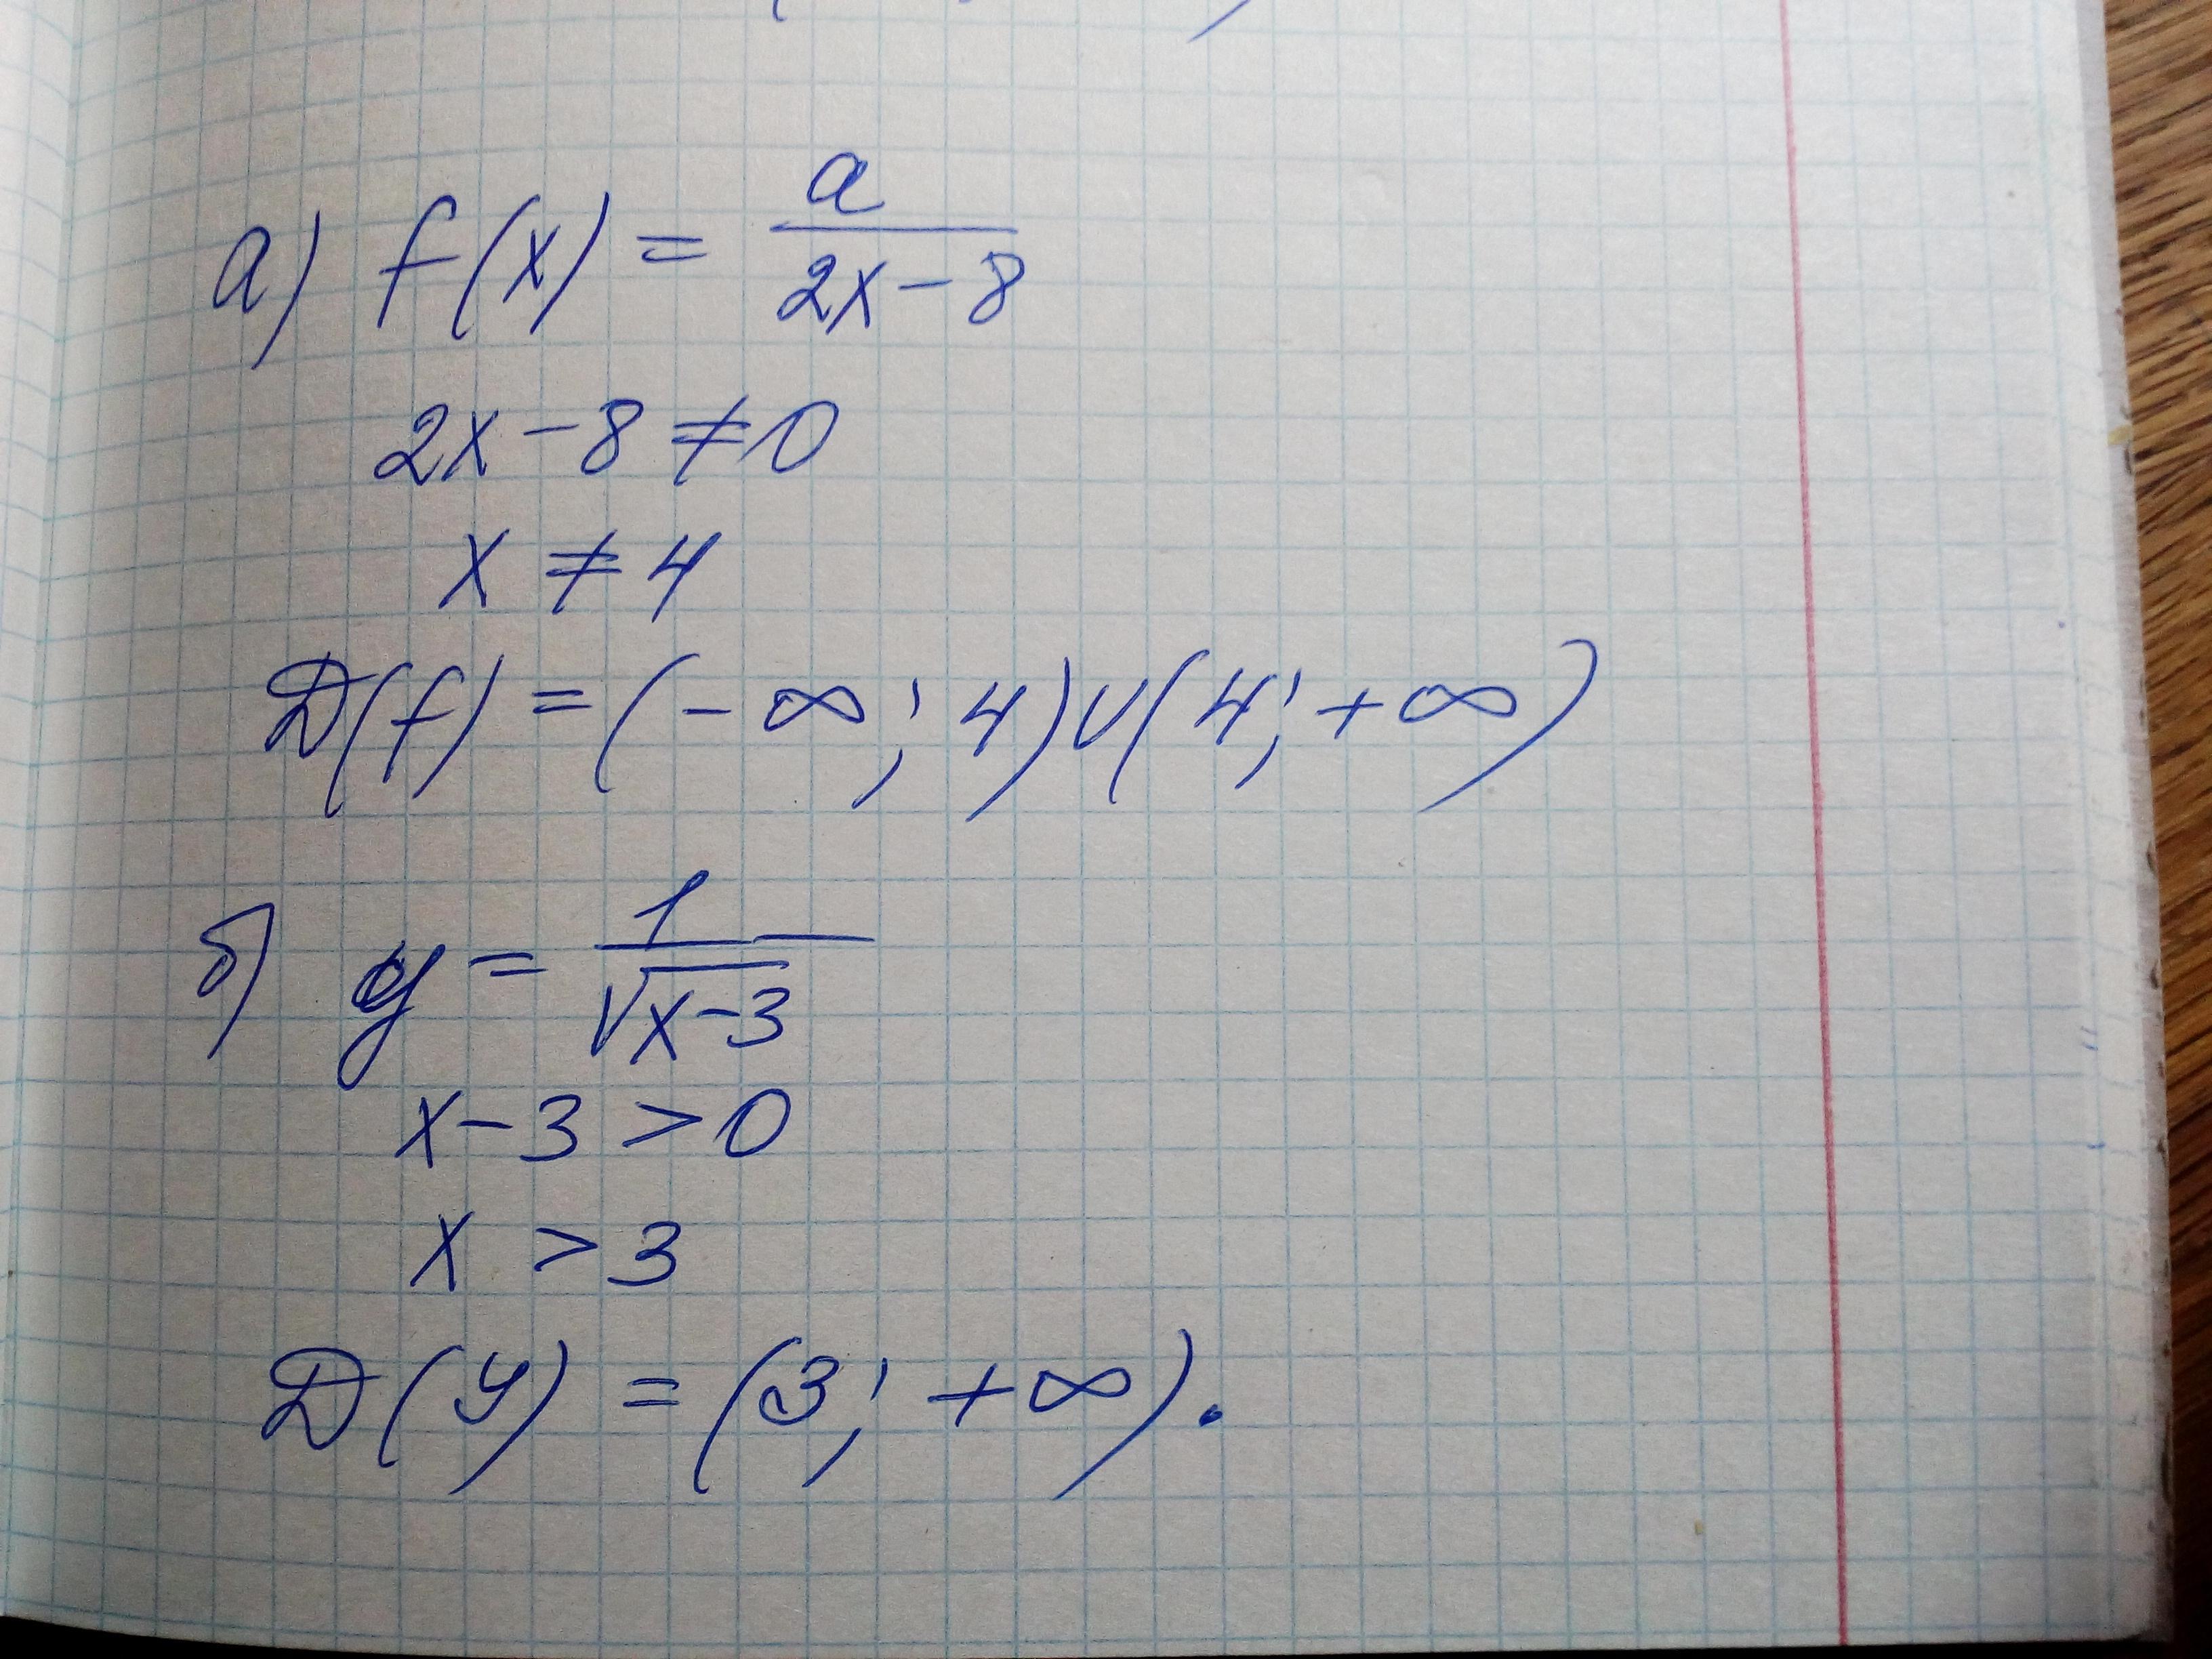 а) f(x) = a/(2x-8)
2x-8≠0
x≠4
Д(f)=(-∞; 4)∪(4; +∞)
б) y = 1/√(x-3)
x-3>0
x>3
Д(y)=(3; +∞).